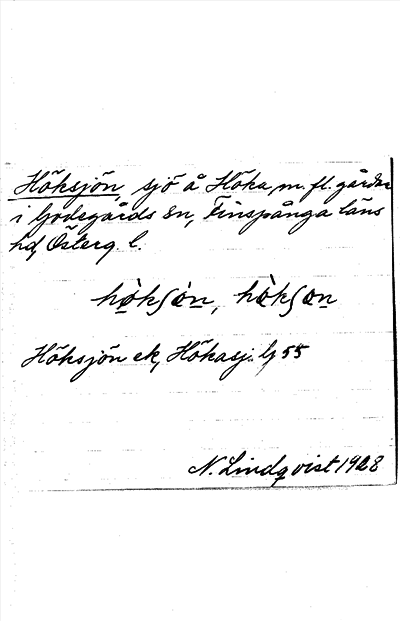 Höksjön, sjö å Höka m. fl. gårdar
i Godegårds sn, Finspånga läns
hd, Österg. l.
hö̀kʃön, hö̀kʃon
Höksjön ek, Hökasj. G 55
N. Lindqvist 1928